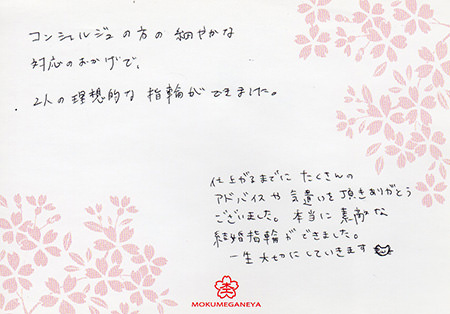 コンシェルジュの方の細やかな
対応のおかげで、
2人の理想的な指輪ができました。
仕上がるまでにたくさんの
アドバイスや気遣いを頂きありがとう
ございました。本当に素敵な
結婚指輪ができました。
一生大切にしていきます
MOKUMEGANEYA